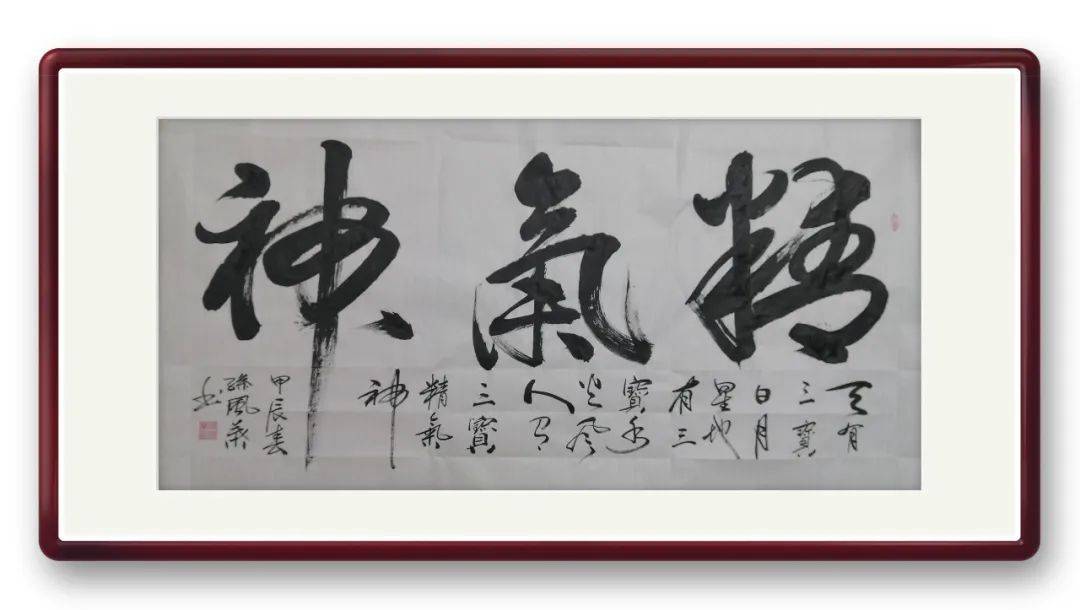 精氣神
天有
三寶
日月
星地
有三
寶水
火風
人有
三寶
精氣
神
甲辰春
孫風
书